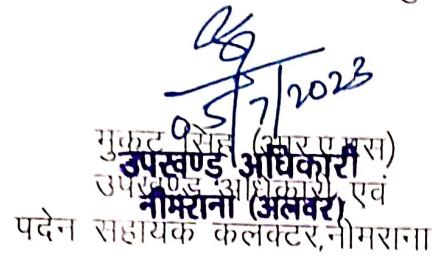 05/7/2023
मुकट सिंह (आर.ए.एस)
उपखण्ड अधिकारी
उपखण्ड अधिकारी एवं
नीमराना (अलवर)
पदेन सहायक कलक्टर,नीमराना